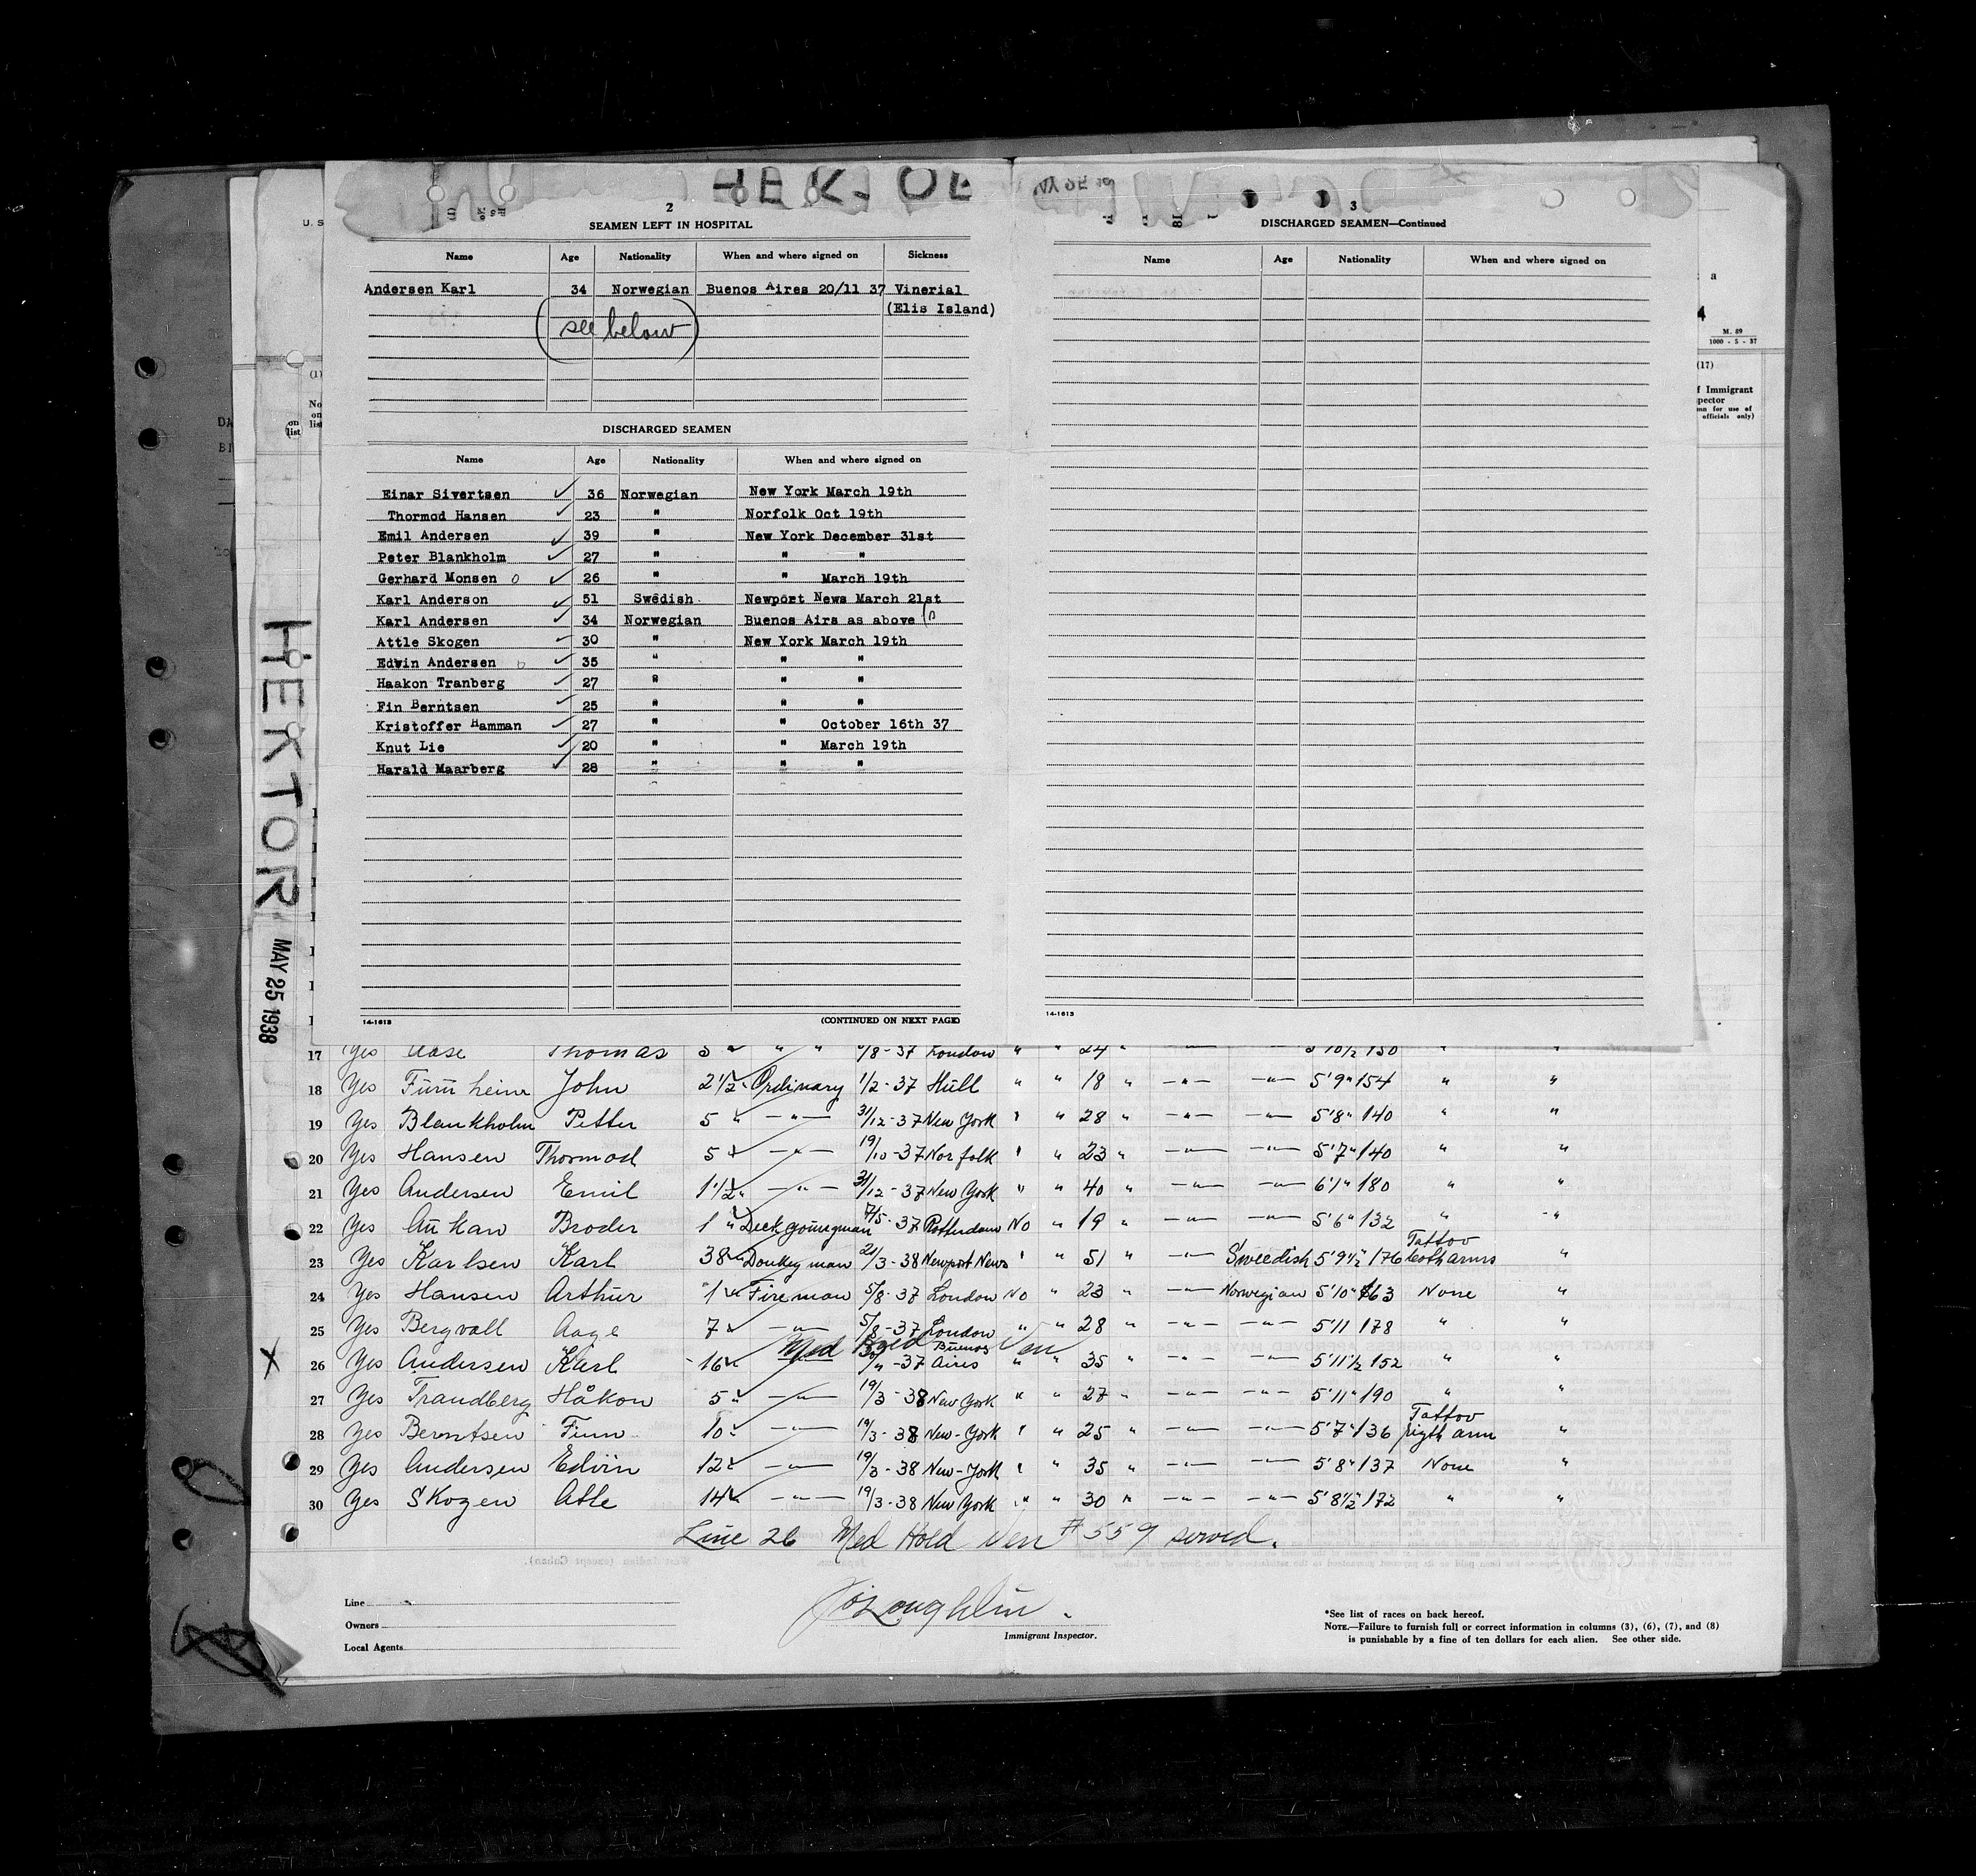 HEKTOR
MAY 25 1938
2
SEAMEN LEFT IN HOSPITAL
Name Age Nationality When and where signed on Sickness
Andersen Karl 34 Norwegian Buenos Aires 20/11 37 Vinerial
(Elis Island)
(see below)
DISCHARGED SEAMEN
Name Age Nationality When and where signed on
Einar Sivertsen ✓ 36 Norwegian New York March 19th
Thormod Hansen ✓ 23 " Norfolk Oct 19th
Emil Andersen ✓ 39 " New York December 31st
Peter Blankholm ✓ 27 " " "
Gerhard Monsen o ✓ 26 " " March 19th
Karl Anderson ✓ 51 Swedish Newport News March 21st
Karl Andersen ✓ 34 Norwegian Buenos Airs as above
Attle Skogen ✓ 30 " New York March 19th
Edwin Andersen o ✓ 35 " " "
Haakon Tranberg ✓ 27 " " "
Fin Berntsen ✓ 25 " " "
Kristoffer Hamman ✓ 27 " " October 16th 37
Knut Lie ✓ 20 " " March 19th
Harald Maarberg ✓ 28 " " "
14-1613 (CONTINUED ON NEXT PAGE)
3
DISCHARGED SEAMEN—Continued
Name Age Nationality When and where signed on
14-1613
M. 89
1000 - 5 - 37
(17)
f Immigrant
pector
mn for use of
officials only)
17 Yes Aase Thomas 5 " " " 5/8-37 London " " 24 " 5'10½ 150 " "
18 Yes John 2½ " Ordinary 1/2-37 Hull " " 18 " -"- -"- 5'9" 154 " "
19 Yes Blankholm Petter 5 " -"- 31/12-37 New York " " 28 " -"- -"- 5'8" 140 " "
20 Yes Hansen Thormod 5 " -"- 19/10-37 Norfolk " " 23 " -"- -"- 5'7" 140 " "
21 Yes Andersen Emil 1½ " -"- 31/12-37 New York " " 40 " -"- -"- 6'1" 180 " "
22 Yes Broder 1 " Deckyoungman 7/5-37 Rotterdam No " 19 " -"- -"- 5'6" 132 " "
23 Yes Karlsen Karl 38 " Donkeyman 21/3-38 Newport News " " 51 " -"- Sweedish 5'9½" 176 Tattov both arms "
24 Yes Hansen Arthur 1 " Fireman 5/8-37 London No " 23 " -"- Norwegian 5'10" 163 None "
25 Yes Bergvall Aage 7 " -"- 5/8-37 London " " 28 " -"- -"- 5'11 178 " "
Med Hold Ven
X 26 Yes Andersen Karl 16 " 20/11-37 Buenos Aires " " 35 " -"- -"- 5'11½ 152 " "
27 Yes Trandberg Håkon 5 " -"- 19/3-38 New York " " 27 " -"- -"- 5'11" 190 " "
28 Yes Berntsen Finn 10 " -"- 19/3-38 New-York " " 25 " -"- -"- 5'7" 136 Tattov rigth arm "
29 Yes Andersen Edvin 12 " -"- 19/3-38 New-York " " 35 " -"- -"- 5'8" 137 None "
30 Yes Skogen Atle 14 " -"- 19/3-38 New York " " 30 " -"- -"- 5'8½" 172 " "
Line 26 Med Hold Ven #559 served.
Line
Owners
Local Agents
Immigrant Inspector.
*See list of races on back hereof.
NOTE.—Failure to furnish full or correct information in columns (3), (6), (7), and (8)
is punishable by a fine of ten dollars for each alien. See other side.